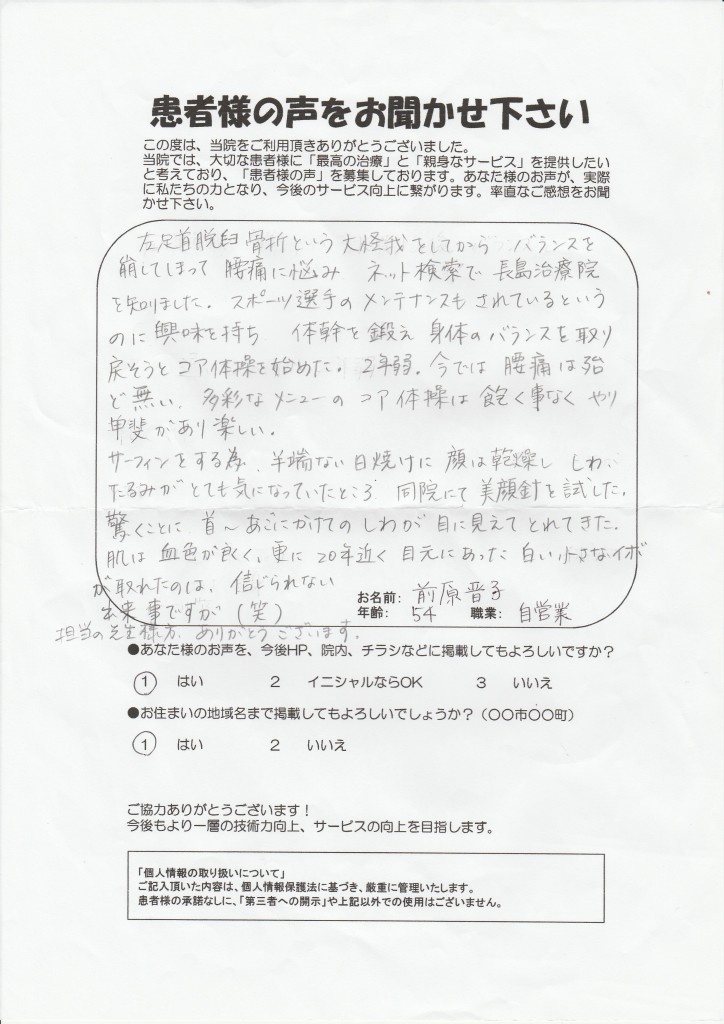 患者様の声をお聞かせ下さい
この度は、当院をご利用頂きありがとうございました。
当院では、大切な患者様に「最高の治療」と「親身なサービス」を提供したい
と考えており、「患者様の声」を募集しております。あなた様のお声が、実際
に私たちの力となり、今後のサービス向上に繋がります。率直なご感想をお聞
かせ下さい。
左足首脱臼骨折という大怪我をしてから バランスを
崩してしまって 腰痛に悩み ネット検索で 長島治療院
を知りました。スポーツ選手のメンテナンスもされているという
のに興味を持ち 体幹を鍛え 身体のバランスを取り
戻そうとコア体操を始めた。2年弱。今では 腰痛は殆
ど無い。多彩なメニューの コア体操は 飽く事なく やり
甲斐があり楽しい。
サーフィンをする為、半端ない日焼けに 顔は乾燥し しわ、
たるみがとても気になっていたところ 同院にて 美顔針を試した。
驚くことに 首〜あごにかけてのしわが 目に見えてとれてきた。
肌は 血色が良く、更に 20年近く 目元にあった 白い小さなイボ
が取れたのは、信じられない
出来事ですが(笑)
お名前: 前原晋子
年齢: 54 職業: 自営業
担当の先生様方、ありがとうございます。
●あなた様のお声を、今後HP、院内、チラシなどに掲載してもよろしいですか?
1 はい 2 イニシャルならOK 3 いいえ
●お住まいの地域名まで掲載してもよろしいでしょうか?(○○市○○町)
1 はい 2 いいえ
ご協力ありがとうございます!
今後もより一層の技術力向上、サービスの向上を目指します。
「個人情報の取り扱いについて」
ご記入頂いた内容は、個人情報保護法に基づき、厳重に管理いたします。
患者様の承諾なしに、「第三者への開示」や上記以外での使用はございません。